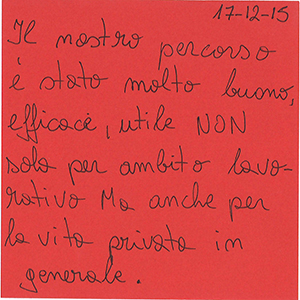 17-12-15
Il nostro percorso
è stato molto buono,
efficace, utile NON
solo per ambito lavo-
rativo Ma anche per
la vita privata in
generale.